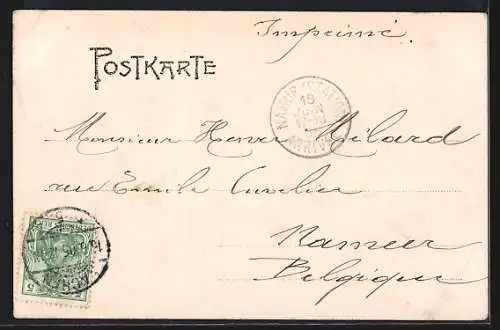 Imprimé.
POSTKARTE
NAMUR (STATION)
18
ARRIVÉE
Monsieur Milard
rue Emile Cuvelier
Namur
Belgique
5